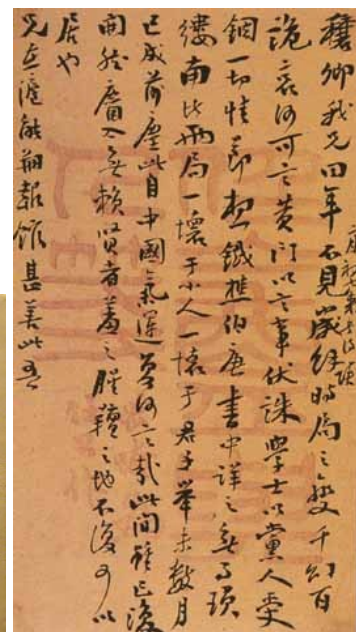 穰卿我兄四年不見經時局之變千幻百
詭哀何可言黃門以言事伏誅學士以黨人受
錮一切情節想鐵樵伯唐書中詳之無事瑣
縷南北兩局一壞于小人一壞于君子舉未數月
已成前塵此自中國氣運何言哉此間雖已復
開然麕入無賴賢者羞之腥羶之地不復可以
居也
兄在滬能創報館甚善此吾